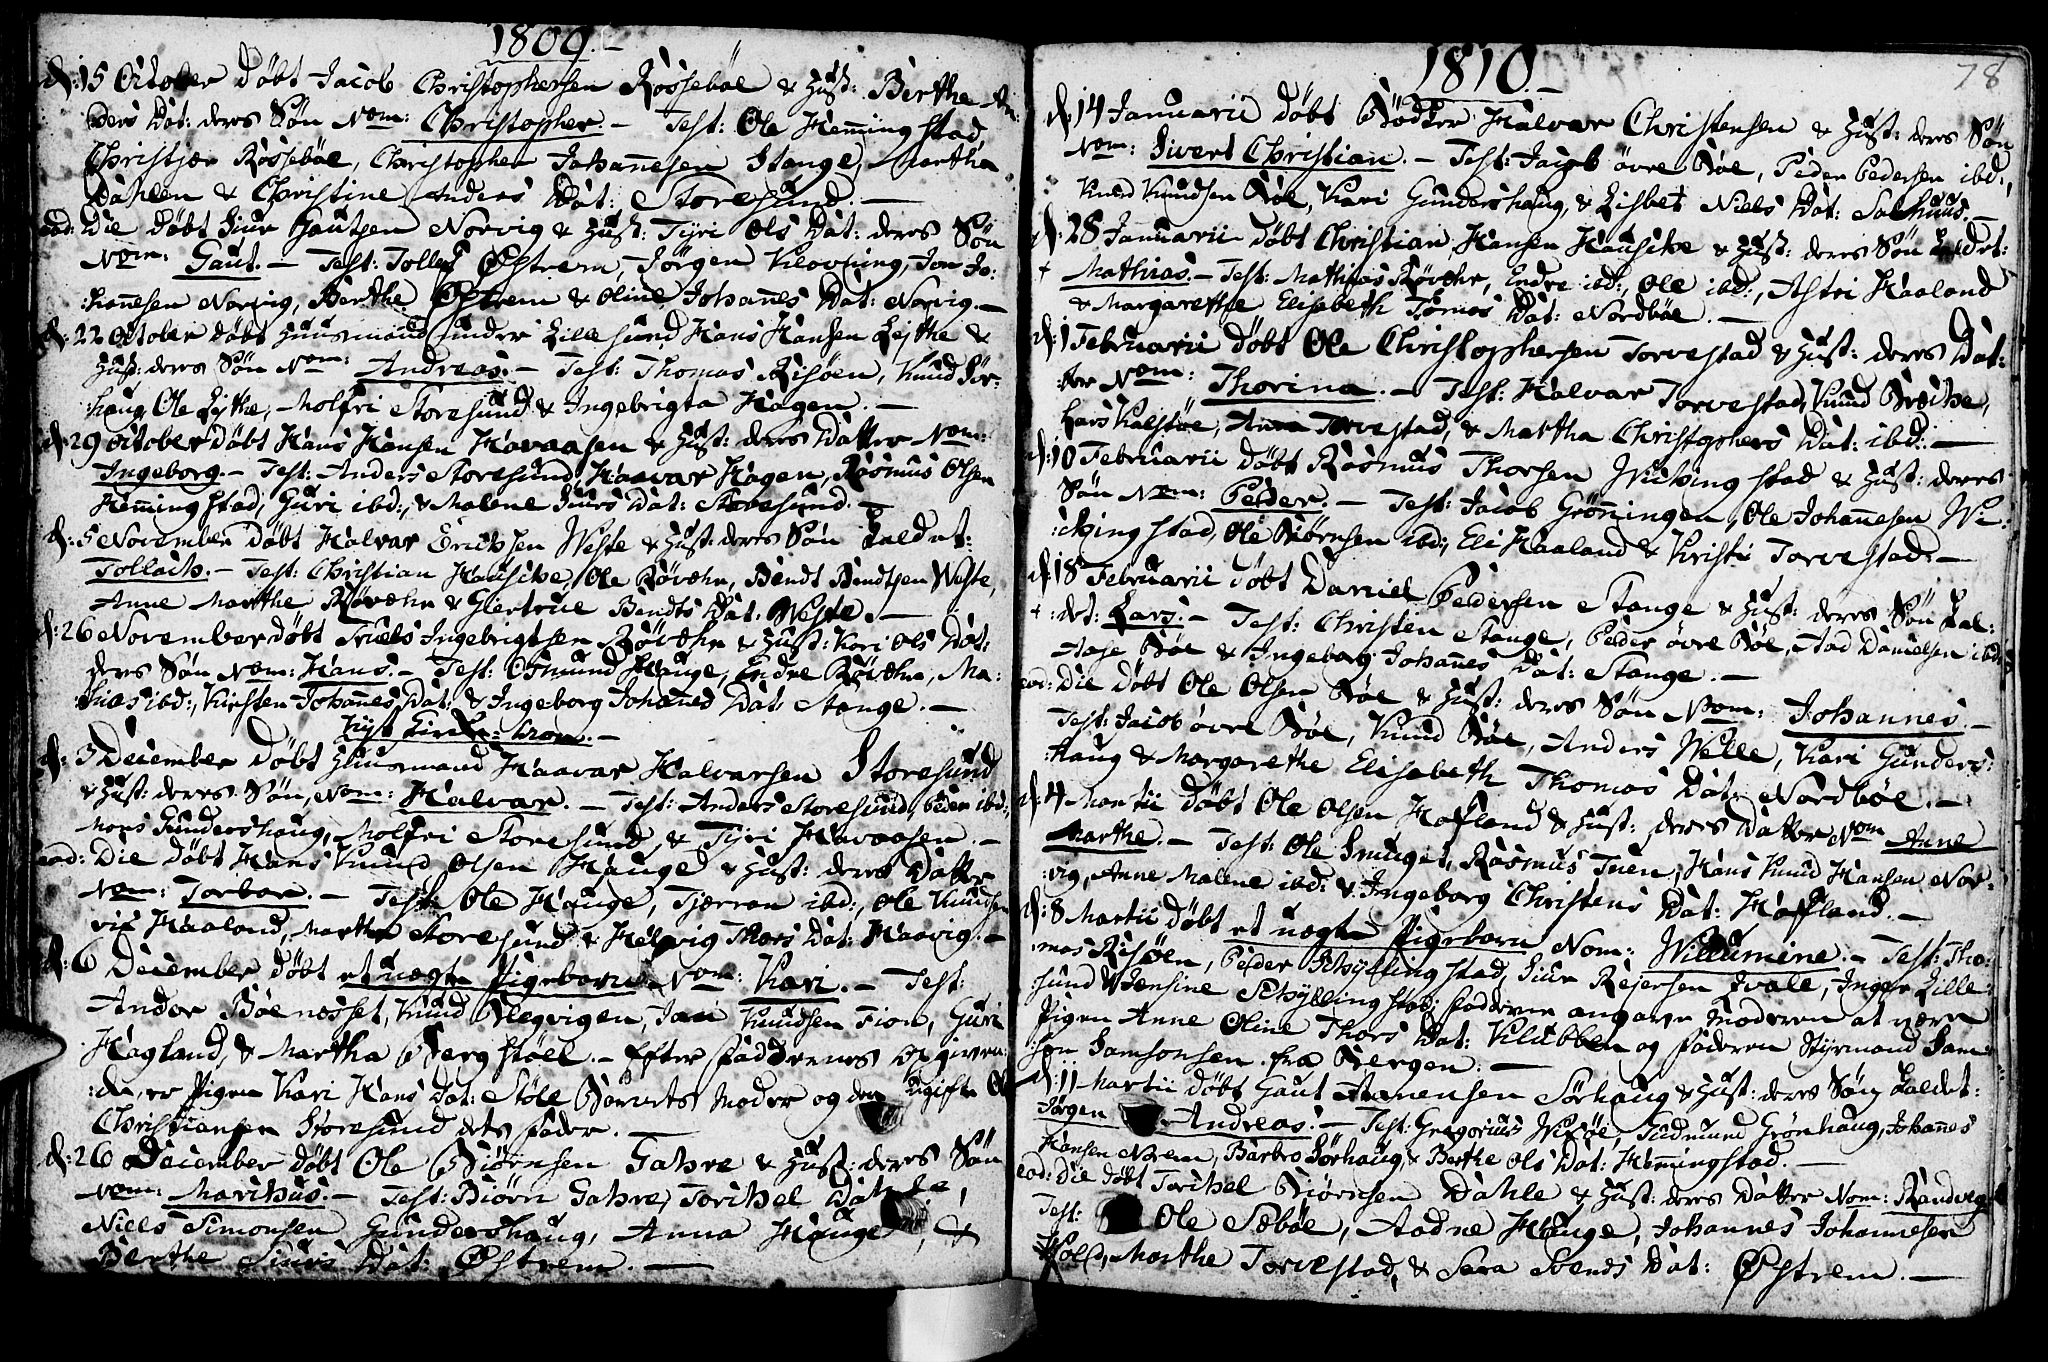 1809.-
d: 15 October døbt Jacob Christophersen Røssebøe & Hust: Berthe An-
ders Dat: deres Søn Nom: Christopher - Test: Ole Hemingstad
Christjan Røssebøe, Christopher Johanesen Stange, Martha
Dahlen & Christine Anders Dat: Storesund.-
ead: Die døbt Siur Gautsen Norvig & Hust: Tyri Ols Dat: deres Søn
Nom: Gaut.- Test: Tollef Østrem, Jørgen Klovning, Jon Jo:
:hanesen Norvig, Berthe Østrem & Oline Johanes Dat: Norvig.-
d: 22 October døbt Huusmand under Lillesund Hans Hansen Lythe &
Hust: deres Søn Nom: Andreas.- Test: Thomas Risøen, Knud Sør-
haug, Ole Lythe, Molfri Storesund & Ingebrigta Hagen.-
d: 29 October døbt Hans Hansen Havaasen & Hust: deres Datter Nom:
Ingeborg.- Test: Anders Storesund, Haavar Hagen, Rasmus Olsen
Hemingstad, Guri ibd:, & Malene Siurs Dat: Storesund.-
d: 5 November døbt Halvar Erichsen Weste & Hust: deres Søn kaldet:
Tollach.- Test: Christian Hauscke, Ole Røvær, Bendt Bendtsen Weste,
Anne Marthe Røvær & Giertrue Bendts Dat: Weste.-
d: 26 November døbt Truels Ingebrigtsen Røvær & Hust: Kari Ols Dat:
deres Søn Nom: Hans.- Test: Osmund Hauge, Endre Røvær, Ma:
thias ibd:, Kirsten Johanes Dat: & Ingeborg Johanes Dat: Stange.-
Nyt Kirke-
d: 3 December døbt Huusmand Haavar Halvarsen Storesund
& Hust: deres Søn, Nom: Halvar.- Test: Anders Storesund, Peder ibd:,
Mons Gundershaug, Molfri Storesund, & Tyri Havaasen.-
ead: Die døbt Hans Knud Olsen Hauge & Hust: deres Datter
Nom: Torbor.- Test: Ole Hauge, Tjerran ibd:, Ole Knudsen
Haaland, Marthe Storesund & Helvig Thors Dat: Haavig.-
d: 6 December døbt et uægte Pigebarn Nom: Kari.- Test:
Andor Bøenesset, Knud Slegvigen, Jan Knudsen Fion, Guri
Hagland, & Martha Bergstøel.- Efter Faddernes Opgiven:
:de, er Pigen Kari Hans Dat: Støle Barnets Moder og den Ugifte Ole
Christiansen Storesund dets Fader.-
d: 26 December døbt Ole Biørnsen Gahre & Hust: deres Søn
Nom: Marchus.- Test: Biørn Gahre, Torchel Dahle,
Niels Simonsen Gundershaug, Anna Hauge, &
Berthe Siurs Dat: Østrem.-
1810.-
78
d: 14 Januarii døbt Bødker Halvar Christensen & Hust: deres Søn
Nom: Sivert Christian.- Test: Jacob øvre Bøe, Peder Pedersen ibd:,
Knud Knudsen Bøe, Kari Gundershaug, & Lisbet Niels Dat: Salhuus.-
d: 28 Januarii døbt Christian Hansen Hauscke & Hust: deres Søn kaldet:
Mathias.- Test: Mathias Røvær, Endre ibd:, Ole ibd:, Astri Haaland
& Margarethe Elisabeth Tomes Dat: Nordbøe.-
d: 1 Februarii døbt Ole Christophersen Torvestad & Hust: deres Dat:
:ter Nom: Thorina.- Test: Halvar Torvestad, Knud Brecke,
Lars Kalstøe, Anna Torvestad, & Martha Christophers Dat: ibd:-
d: 10 Februarii døbt Rasmus Thorsen Wichingstad & Hust: deres
Søn Nom: Peder.- Test: Jacob Grønningen, Ole Johanesen Wi:
:chingstad, Ole Biørnsen ibd:, Eli Haaland & Kristi Torvestad.-
d: 18 Februarii døbt Daniel Pedersen Stange & Hust: deres Søn kal:
:det: Lars.- Test: Christen Stange, Peder øvre Bøe, Aad Danielsen ibd:
Aase Bøe & Ingeborg Johanes Dat: Stange.-
ead: Die døbt Ole Olsen Bøe & Hust: deres Søn Nom: Johannes.-
Test: Jacob øvre Bøe, Knud Bøe, Anders Welle, Kari Gunders:
:haug & Margarethe Elisabeth Thomas Dat: Nordbøe.-
d: 4 Martii døbt Ole Olsen Hafland & Hust: deres Datter Nom Anne
Marthe.- Test: Ole Snuget, Rasmus Tuen, Hans Knud Hansen Nor-
:vig, Anne Malene ibd: & Ingeborg Christens Dat: Hafland.-
d: 8 Martii døbt et uægte Pigebarn Nom: Willumine.- Test: Tho:
:mas Risøen, Peder Schyllingstad, Siur Reiersen Kvale, Inger Lille:
:sund & Jensine Schyllingstad; Faderne angaven Moderen at være
Pigen Anne Oline Thors Dat: Klubben og Faderen Styrmand Sam:
:son Samsonsen fra Bergen.-
d: 11 Martii døbt Gaut Anensen Sørhaug & Hust: deres Søn kaldet:
Jørgen Andreas.- Test: Gregorius Wibøe, Gudmund Grønhaug, Johanes
Hansen Nrem, Barbro Sørhaug, & Berthe Ols Dat: Hemingstad.-
ead: Die døbt Torchel Biørnsen Dahle & Hust: deres Datter Nom: Randvig
Test: Ole Sæbøe, Aadne Hauge, Johannes Johannesen
Marthe Torvestad, & Sara Svends Dat: Østrem.-